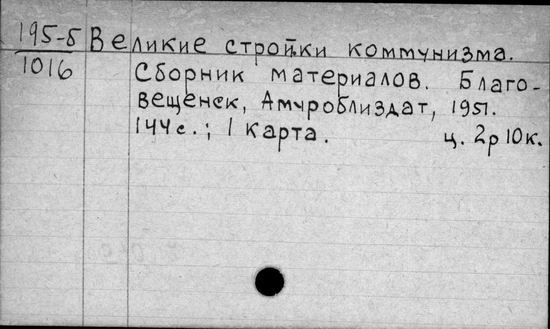 195-б Великие стройки коммунизма.
1016 Сборник материалов. Благо-
вещенск, Амуроблиздат, 1951.
144с.; 1 карта. ц. 2р 10к.